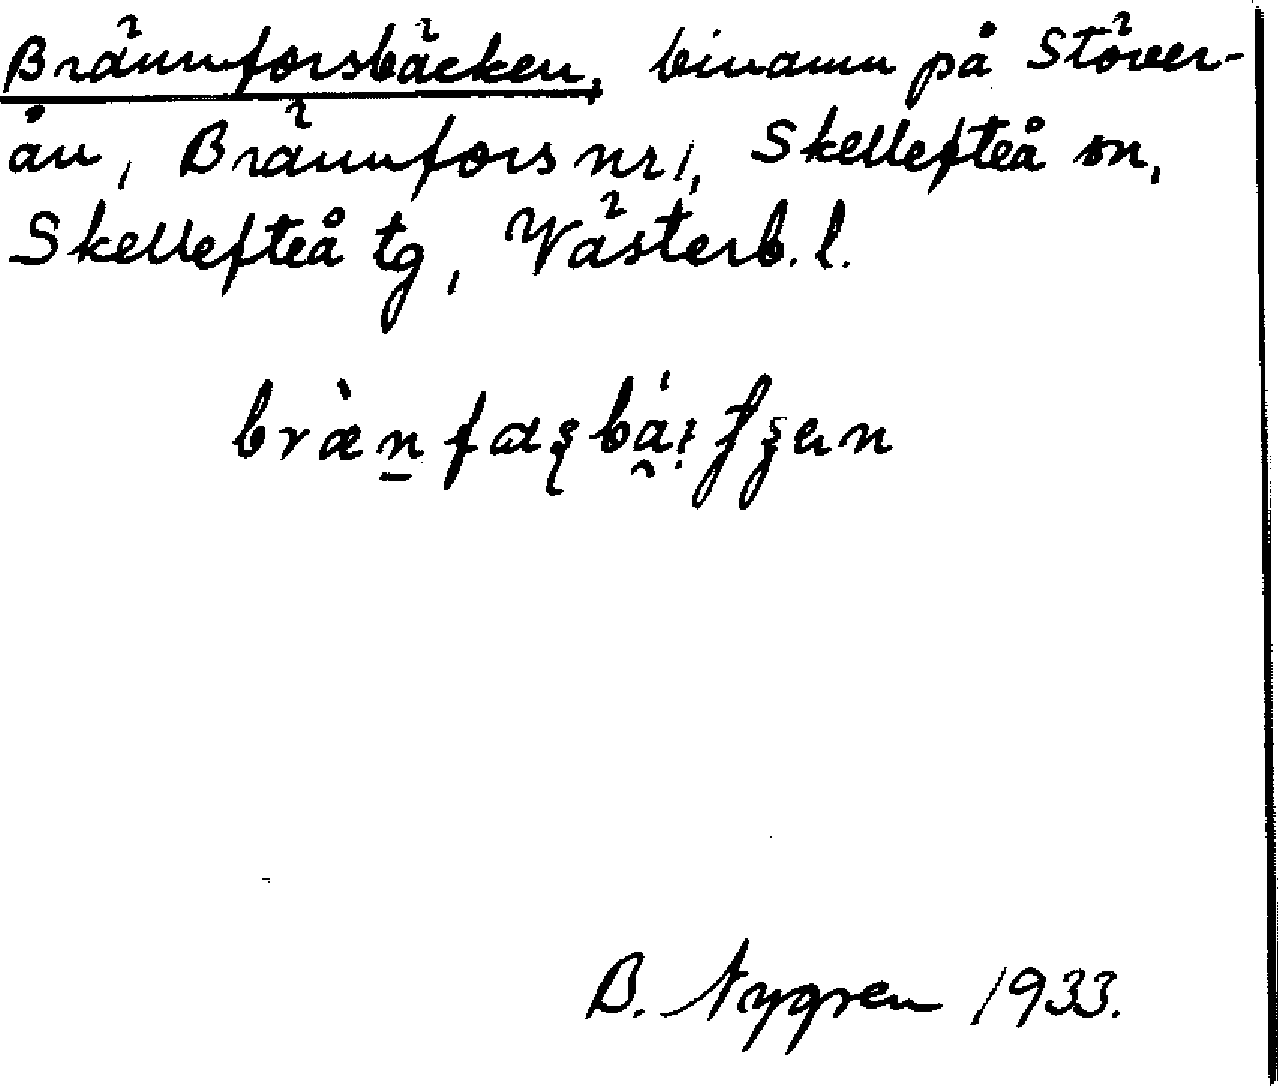 Brännforsbäcken, binamn på Stöver-
ån, Brännfors nr 1, Skellefteå sn,
Skellefteå tg, Västerb. l.
B. Nygren 1933.